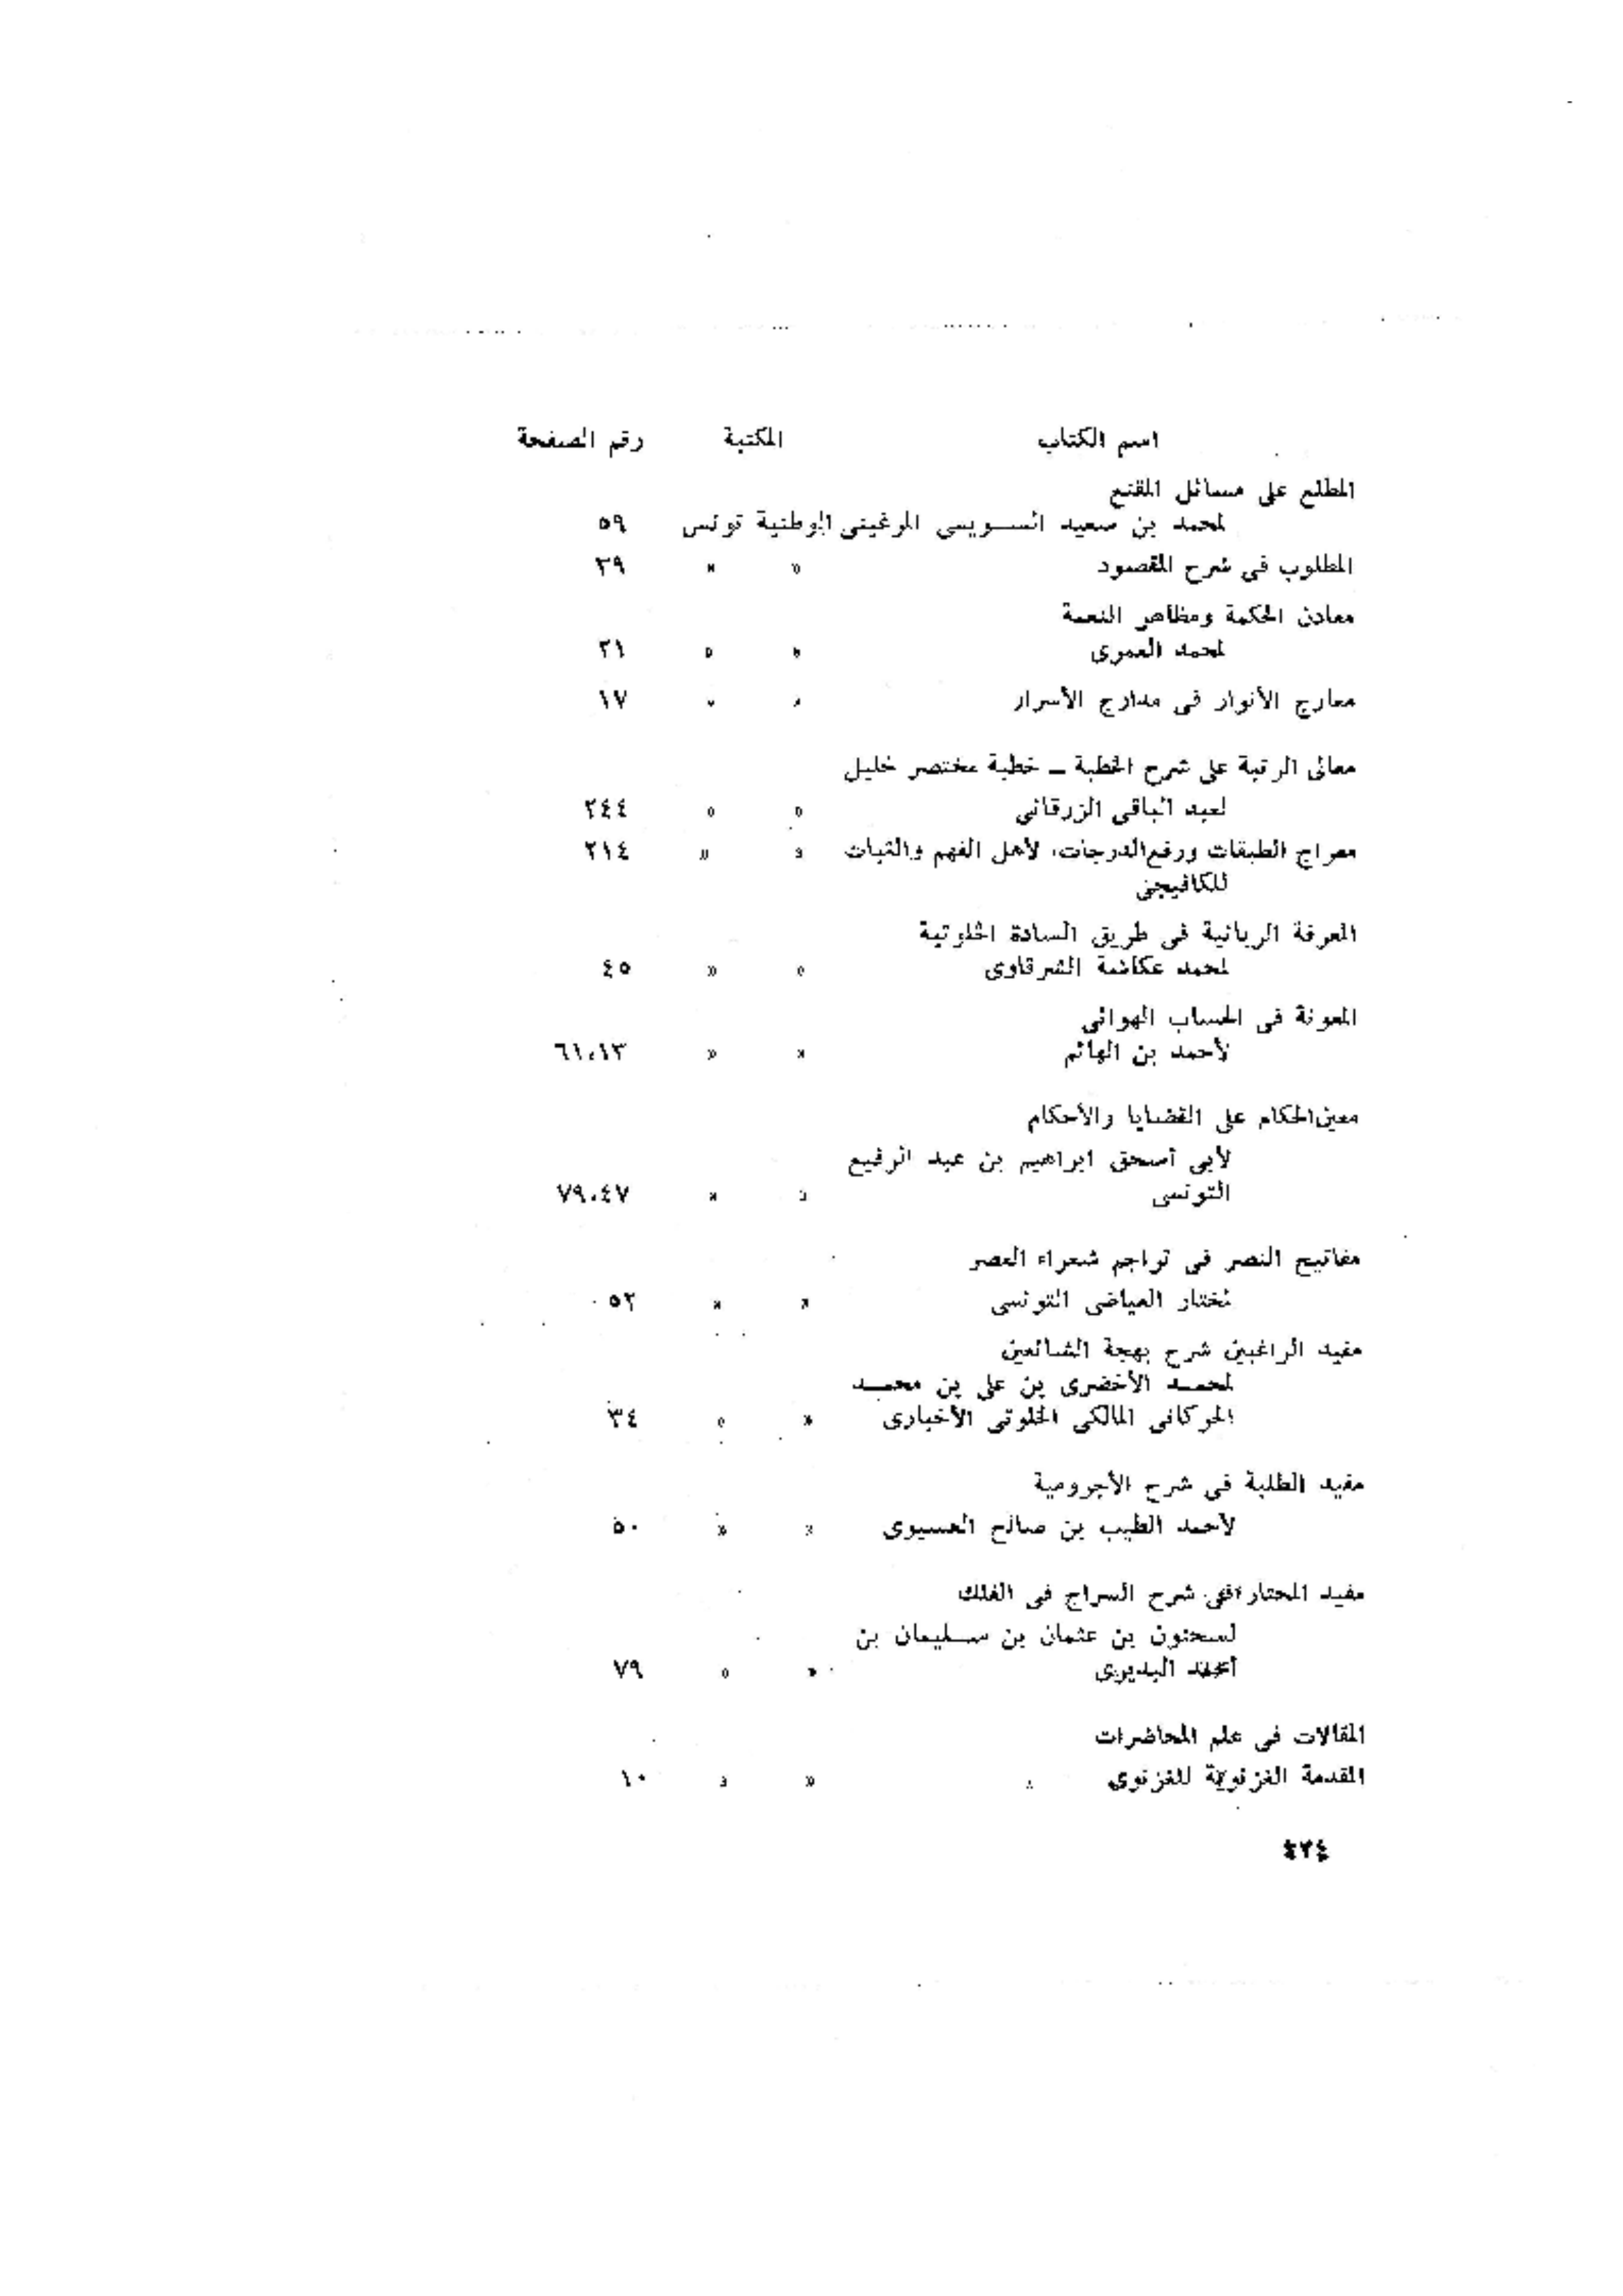 اسم الكتاب المكتبة رقم الصفحة
المطلع على مسائل المقنع
لمحمد بن سعيد السـويسى المرغيثى الوطنية تونس ٥٩
المطلوب فى شرح المقصود » » ٣٩
معادن الحكمة ومظاهر النعمة
لمحمد العمرى » » ٢١
معارج الأنوار فى مدارج الأسرار » » ١٧
معانى الرتبة على شرح الخطبة ــ خطبة مختصر خليل
لعبد الباقى الزرقانى » » ٢٤٤
معراج الطبقات ورفع الدرجات، لأهل الفهم والثبات » » ٢١٤
للكافيجى
المعرفة الربانية فى طريق السادة الخلوتية
لمحمد عكاشة الشرقاوى » » ٤٥
المعونة فى الحساب الهوائى
لأحمد بن الهائم » » ٦١،١٣
معين الحكام على القضايا والأحكام
لأبى أسحق ابراهيم بن عبد الرفيع
التونسى » » ٧٩،٤٧
مفاتيح النصر فى تراجم شعراء العصر
لمختار العياضى التونسى » » ٥٢
مفيد الراغبين شرح بهجة الشائعين
لمحمـد الأخضرى بن على بن محمـد
الجوكانى المالكى الخلوتى الأخبارى » » ٣٤
مفيد الطلبة فى شرح الأجرومية
لأحمد الطيب بن صالح العسيوى » » ٥٠
مفيد المحتار فى شرح السراج فى الفلك
لسحنون بن عثمان بن سـليمان بن
أحمد اليديرى » » ٧٩
المقالات فى علم المحاضرات
المقدمة الغزنوية للغزنوى » » ١٠
٤٢٤